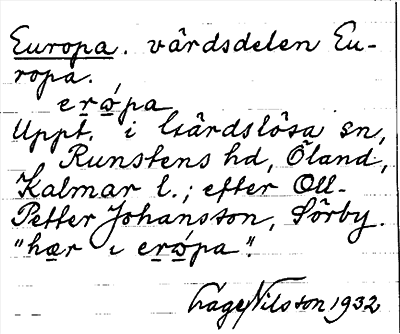 Europa. värdsdelen Eu-
ropa.
erǫ́pa
Uppt. i Gårdslösa sn,
Runstens hd, Öland,
Kalmar l.; efter Oll-
Petter Johansson, Sörby.
"hær i erǫ́pa".
Åage Nilsson 1932